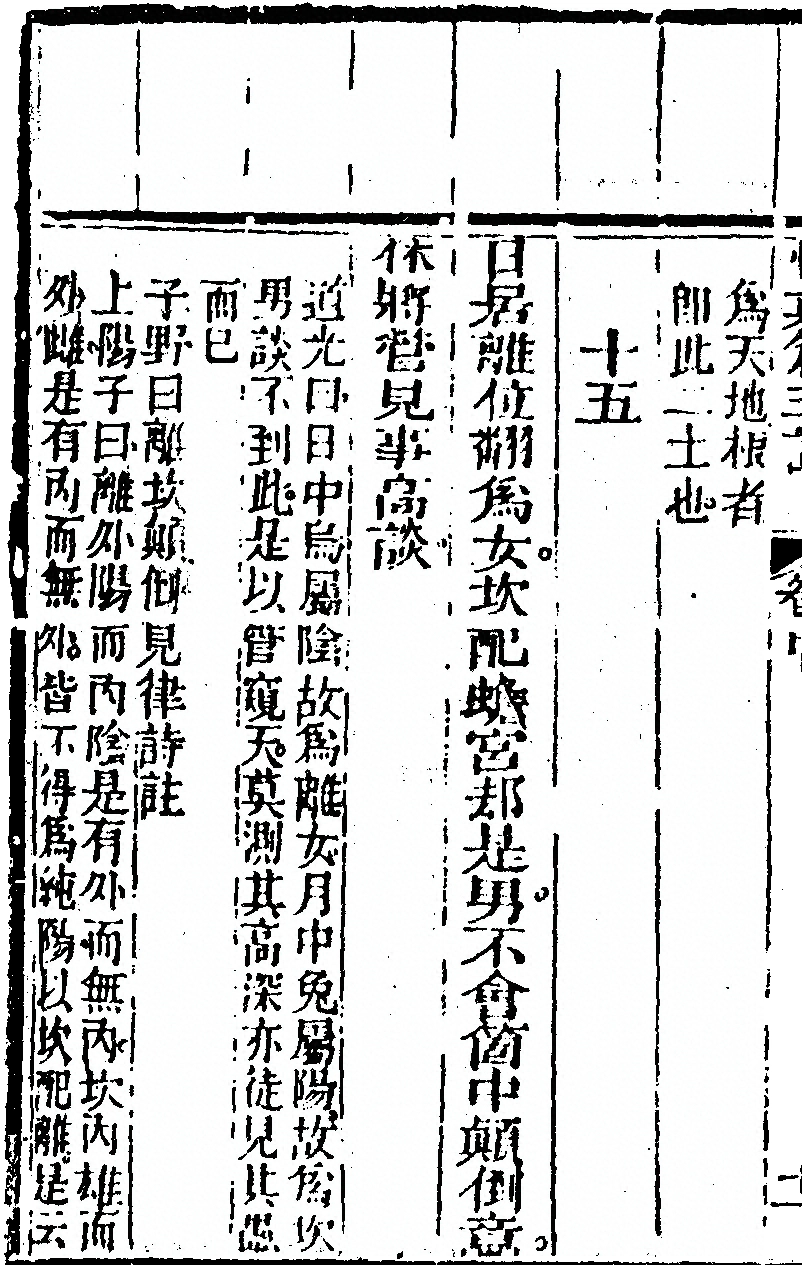 悟真篇三註 卷中
爲天地根者
卽此二土也
十五
日居離位翻爲女坎配蟾宮却是男不會箇中顛倒意
休將管見事高談
道光曰日中烏屬陰故爲離女月中兔屬陽故爲坎
男談不到此是以管窺天莫測其高深亦徒見其愚
而已
子野曰離坎顛倒見律詩註
上陽子曰離外陽而內陰是有外而無內坎內雄而
外雌是有內而無外皆不得爲純陽以坎配離是云